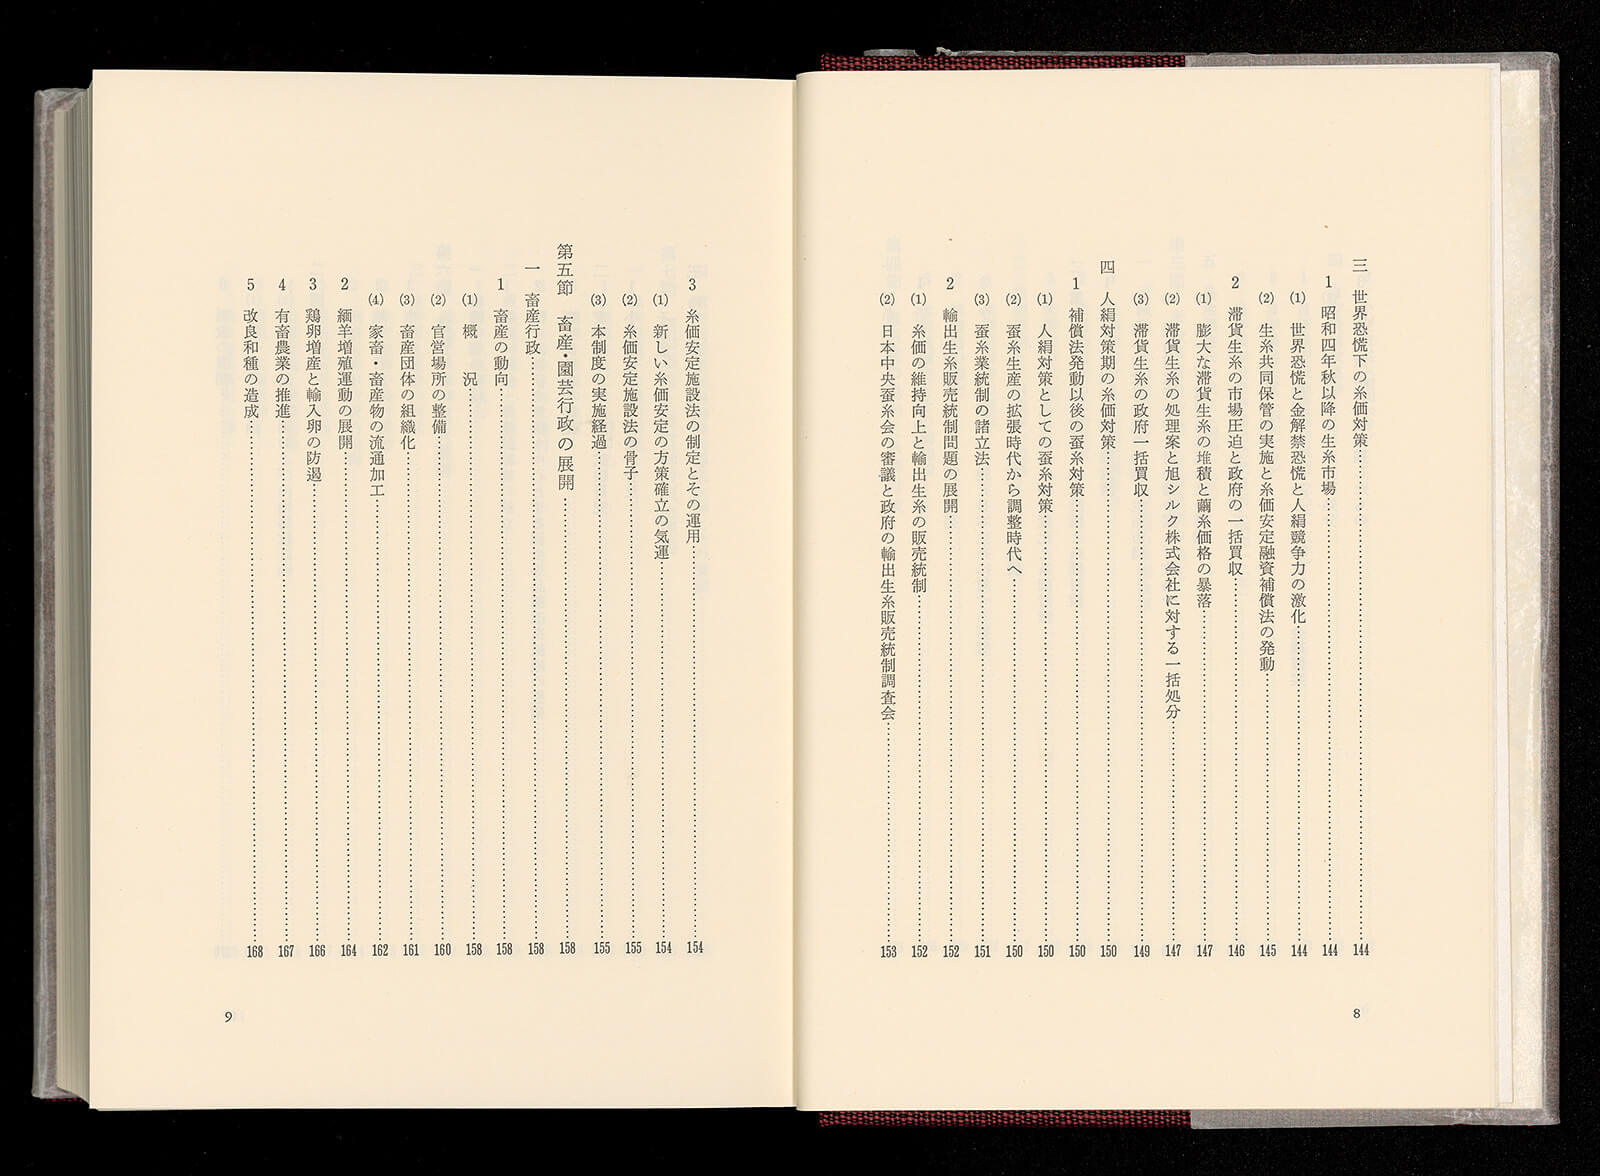 三　世界恐慌下の糸価対策……144
1　昭和四年秋以降の生糸市場……144
(1)　世界恐慌と金解禁恐慌と人絹競争力の激化……144
(2)　生糸共同保管の実施と糸価安定融資補償法の発動……145
2　滞貨生糸の市場圧迫と政府の一括買収……146
(1)　膨大な滞貨生糸の堆積と繭糸価格の暴落……147
(2)　滞貨生糸の処理案と旭シルク株式会社に対する一括処分……147
(3)　滞貨生糸の政府一括買収……149
四　人絹対策期の糸価対策……150
1　補償法発動以後の蚕糸対策……150
(1)　人絹対策としての蚕糸対策……150
(2)　蚕糸生産の拡張時代から調整時代へ……150
(3)　蚕糸業統制の諸立法……151
2　輸出生糸販売統制問題の展開……152
(1)　糸価の維持向上と輸出生糸の販売統制……152
(2)　日本中央蚕糸会の審議と政府の輸出生糸販売統制調査会……153
8
3　糸価安定施設法の制定とその運用……154
(1)　新しい糸価安定の方策確立の気運……154
(2)　糸価安定施設法の骨子……155
(3)　本制度の実施経過……155
第五節　畜産・園芸行政の展開……158
一　畜産行政……158
1　畜産の動向……158
(1)　概　況……158
(2)　官営場所の整備……160
(3)　畜産団体の組織化……161
(4)　家畜・畜産物の流通加工……162
2　緬羊増殖運動の展開……164
3　鶏卵増産と輸入卵の防遏……166
4　有畜農業の推進……167
5　改良和種の造成……168
9